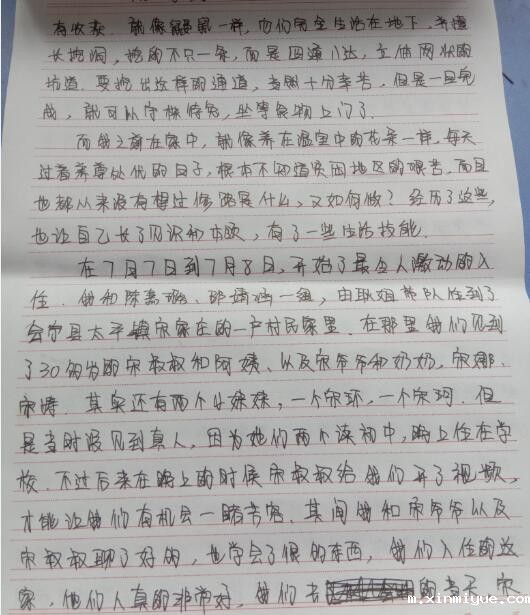 有收获. 就像鼹鼠一样, 它们完全生活在地下, 并擅
长挖洞, 挖的不只一条, 而是四通八达, 立体网状的
坑道. 要挖出这样的通道, 当然十分辛苦, 但是一旦完
成, 就可以守株待兔, 坐等食物上门了.
而我之前在家中, 就像养在温室中的花朵一样, 每天
过着养尊处优的日子, 根本不知道贫困地区的艰苦, 而且
也都从来没有想过修路是什么, 又如何做? 经历了这些,
也让自己长了见识和本领, 有了一些生活技能.
在7月7日到7月8日, 开始了最令人激动的入
住. 我和陈 一组, 由 姐带队住到了
会宁县太平镇宋家庄的一户村民家里. 在那里我们见到
了30 的宋叔叔和阿姨, 以及宋爷爷和奶奶, 宋娜.
宋 . 其实还有两个小妹妹, 一个宋环, 一个宋珂. 但
是当时没见到真人, 因为她们两个读初中, 晚上住在学
校. 不过后来在晚上的时候宋叔叔给我们开了视频,
才能让我们有机会一睹芳容. 其间我和宋爷爷以及
宋叔叔聊了好的, 也学会了很的东西, 我们入住的这
家, 他们人真的非常好. 我们去 的妻子, 宋
m.xinmiyue.com